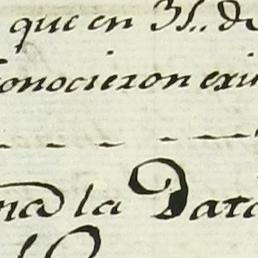 que en 31.. de
conocieron exi
ma la Data